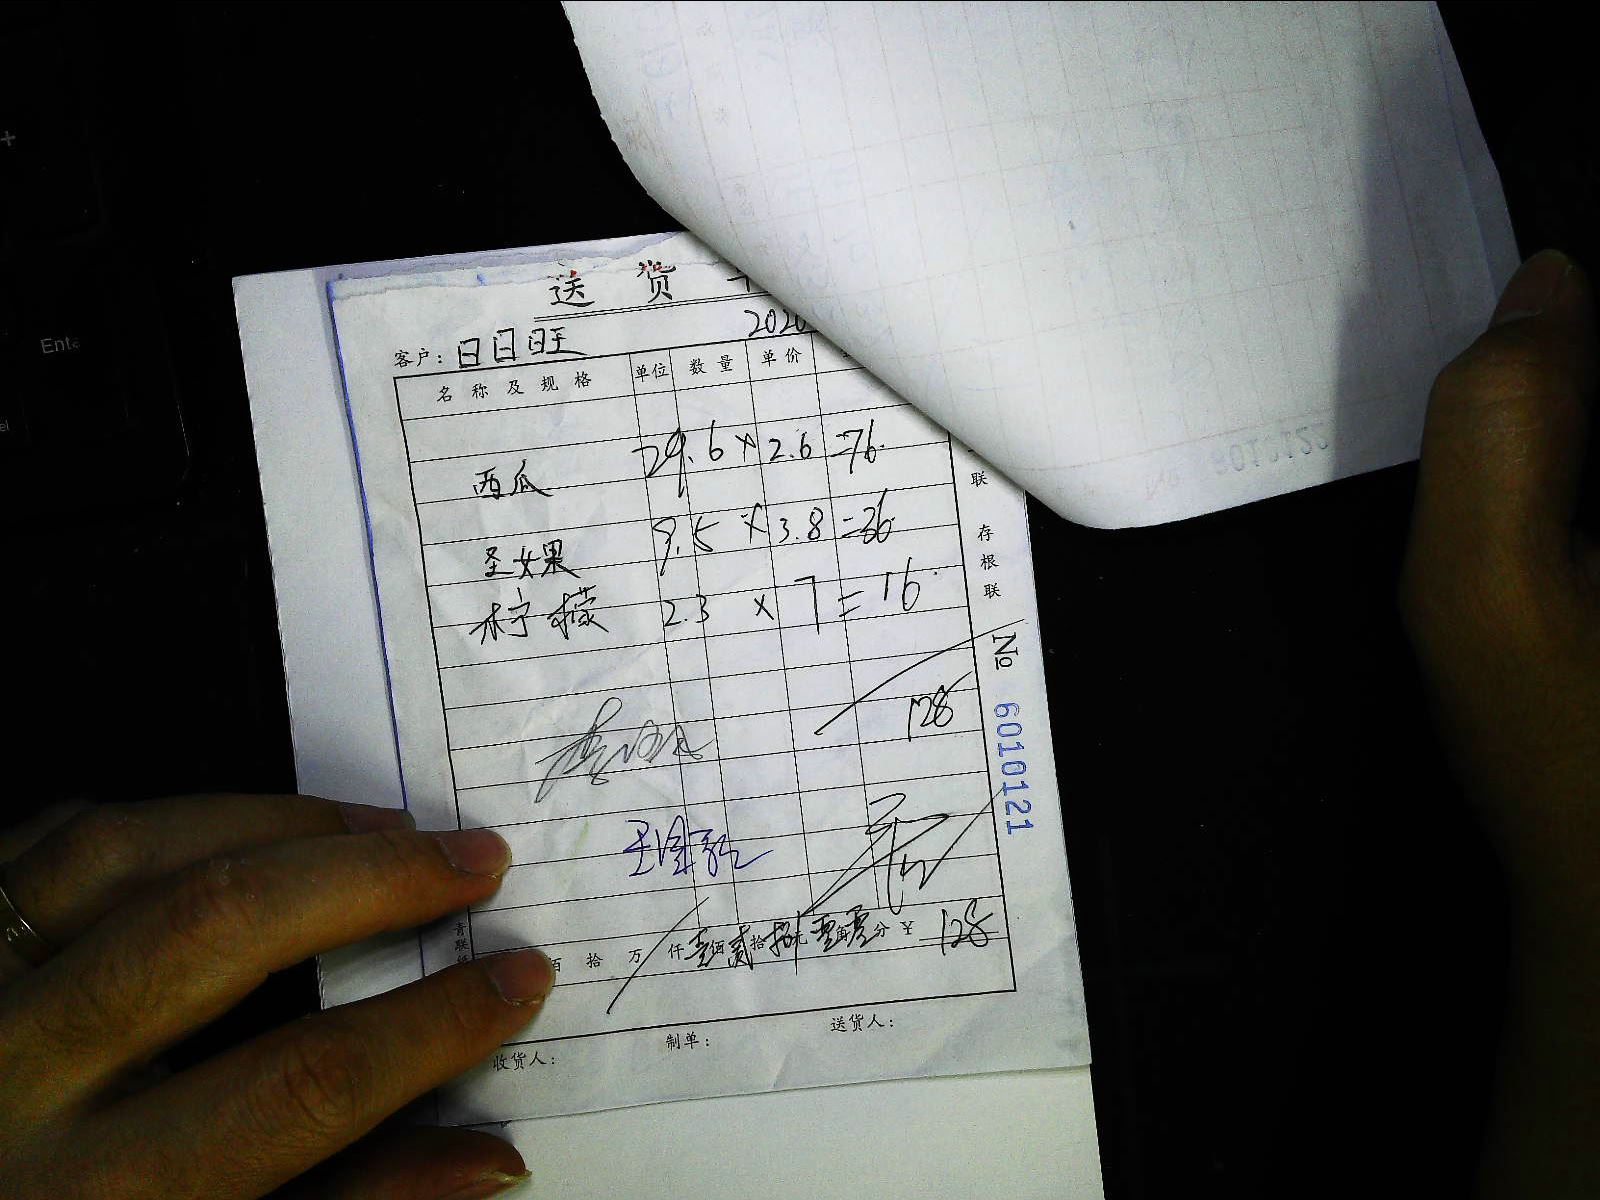 送 货
2020
客户：日日旺
名 称 及 规 格 单位 数 量 单 价
西瓜 29.6 × 2.6 =76.
圣女果 9.5 × 3.8 =36.
柠檬 2.3 × 7 = 16.
128
仟壹佰贰拾捌元零角零分 ¥ 128
佰 拾 万
收货人： 制单： 送货人：
联 存根联
№ 6010121
Ente
+